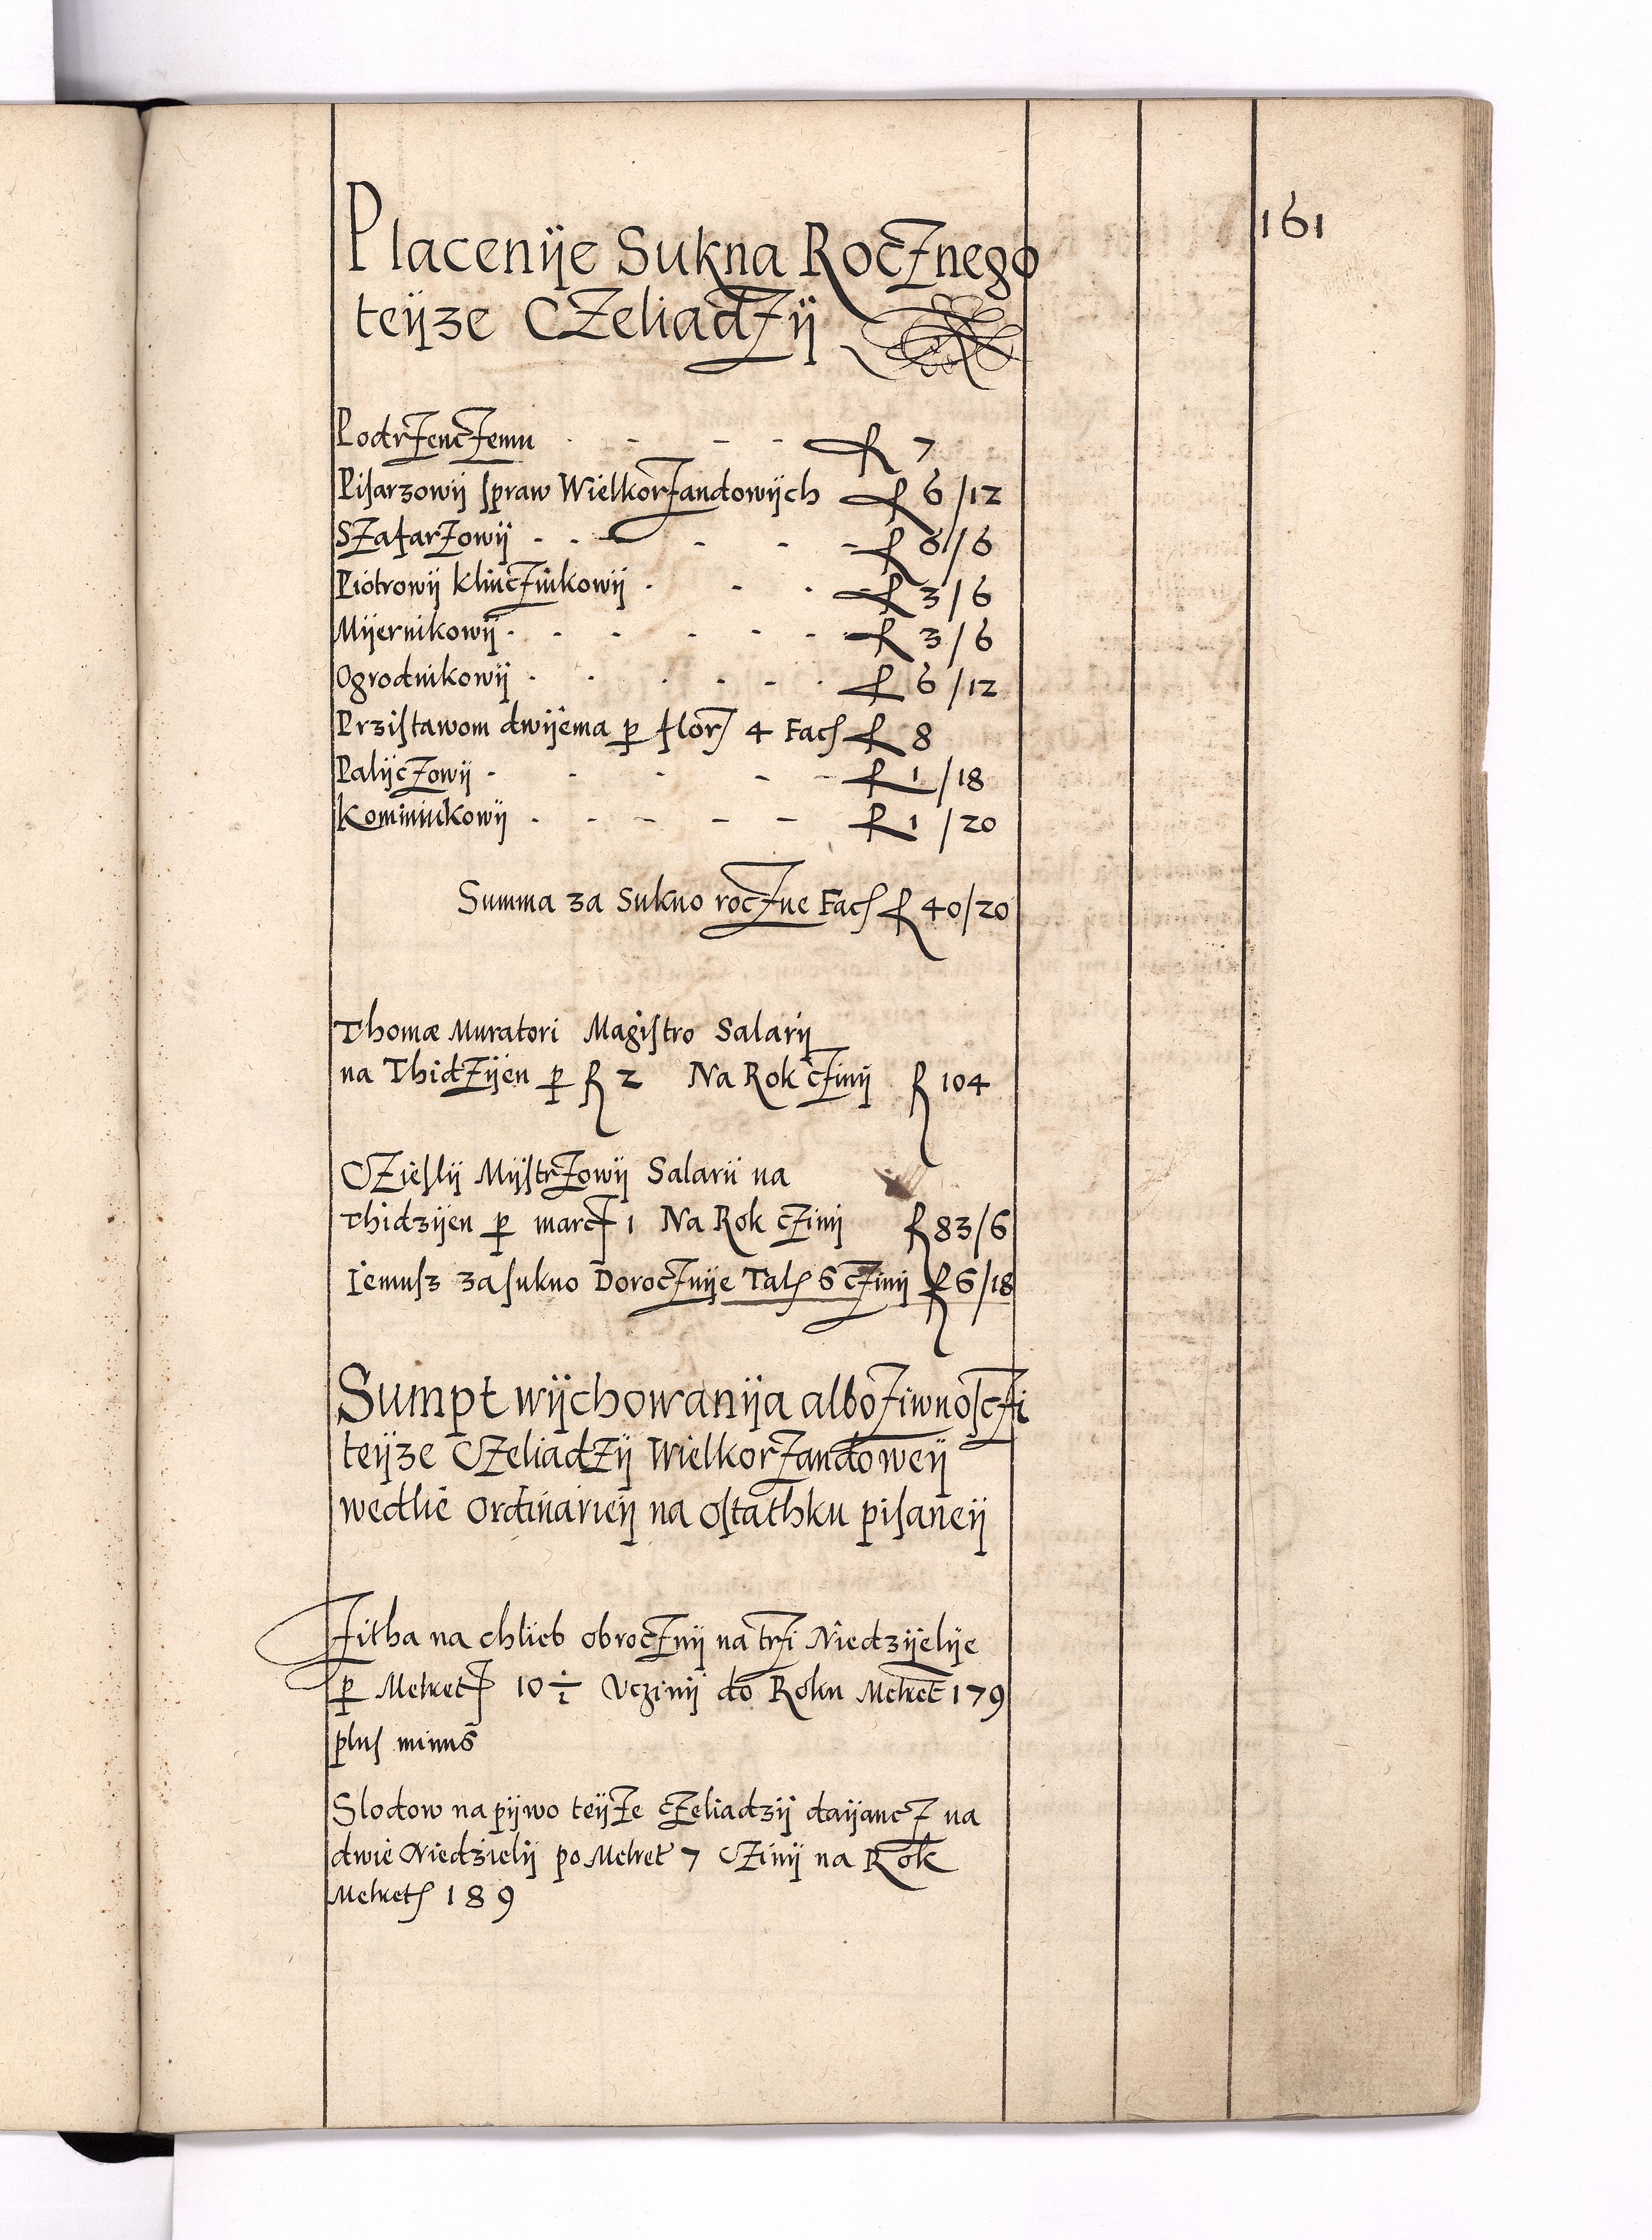 161
Placenije Sukna Rocznego
teijze Czeliadzij
Podrzenczemu . - - - - f 7
Pisarzowij spraw Wielkorzandowijch f 6/12
Szafarzowij - - - - - - f 6/6
Piotrowij kliucznikowij . - . f 3/6
Mijernikowij . - - - - - f 3/6
Ogrodnikowij . . . . - . f 6/12
Przistawom dwijema p flor 4 Fac f 8
Palijczowij - - - - - f 1/18
Kominiukowij . - - - - f 1/20
Summa za Sukno roczne Fac f 40/20
Thomæ Muratori Magistro Salarij
na Thidzijen p f 2 Na Rok czinij f 104
Cziesslij Mijstrzowij Salarii na
Thidzijen p marcz 1 Na Rok czinij f 83/6
Iemusz za sukno Dorocznije Tal 6 czinij f 6/18
Sumpt wijchowanija albo ziwnosczi
teijze Czeliadzij Wielkorzandoweij
wedlie ordinarieij na ostathku pisaneij
Zitha na chlieb obrocznij na trzi Niedzijelije
p Metret 10 1/2 Vczinij do Roku Metret 179
plus minus
Slodow na pijwo teijze czeliadzij daijancz na
dwie Niedzielij po Metret 7 Czinij na Rok
Metret 189